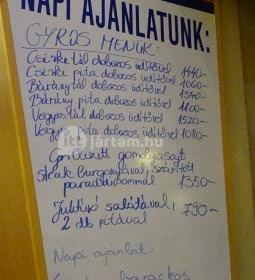 NAPI AJÁNLATUNK:
GYROS MENÜK:
Csirke tál dobozos üdítővel 1440-
Csirke pita dobozos üdítővel 1060-
Bárány tál dobozos üdítővel 1540-
Bárány pita dobozos üdítővel 1100-
Vegyes tál dobozos üdítővel 1520-
Vegyes pita dobozos üdítővel 1080-
Grillezett gomolyasajt
steak burgonyával, szárított
paradicsommal 1350-
Juhtúró salátával,
2 db pitával 790-
Napi ajánlat:
barackos
jártam.hu